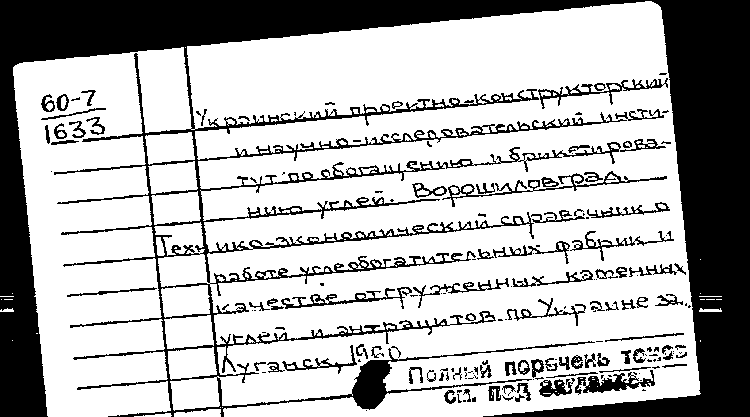 60-7
1633
Украинский проектно-конструкторский
и научно-исследовательский инсти-
тут по обогащению и брикетирова-
нию углей. Ворошиловград.
Технико-экономический справочник о
работе углеобогатительных фабрик и
качестве отгруженных каменных
углей и антрацитов по Украине за...
Луганск, 1960
Полный перечень томов
см. под заглавием